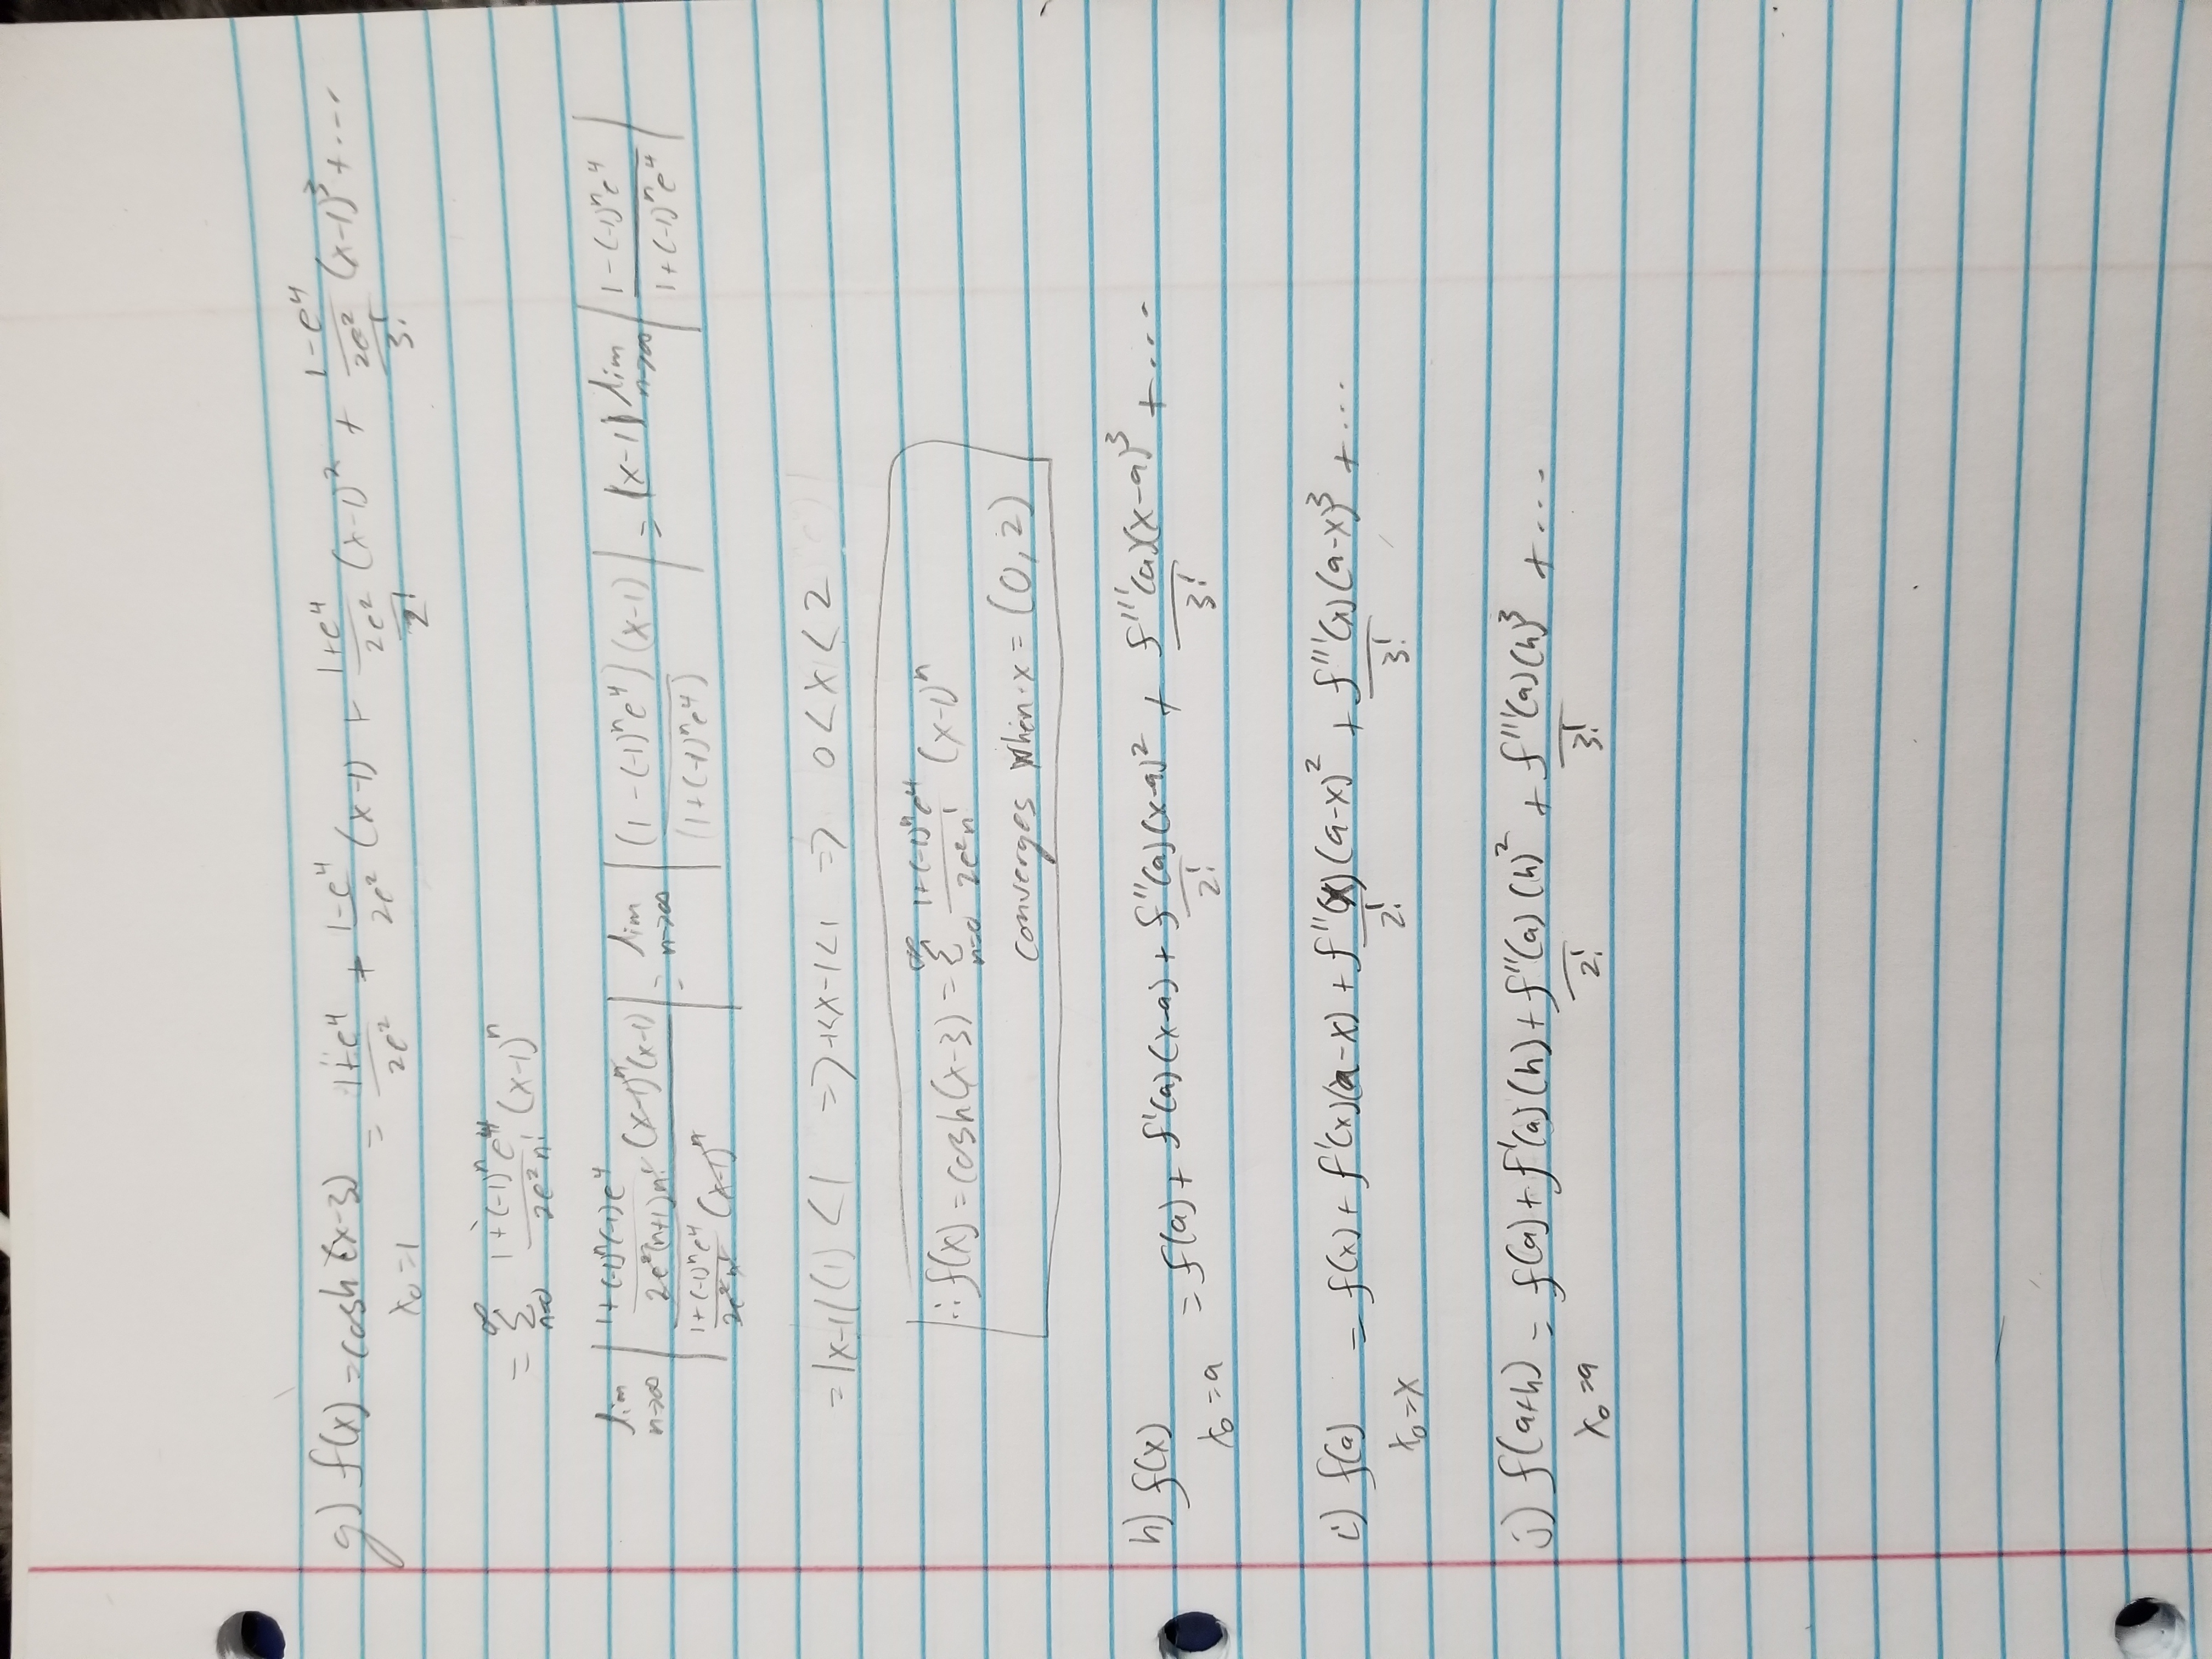 g) f(x) = cosh(x-3) = (1+e^4)/(2e^2) + (1-e^4)/(2e^2) (x-1) + ((1+e^4)/(2e^2))/2! (x-1)^2 + ((1-e^4)/(2e^2))/3! (x-1)^3 + ...
x₀ = 1
= ∑_{n=0}^{∞} (1+(-1)^n e^4)/(2e^2 n!) (x-1)^n
lim_{n→∞} | ((1+(-1)^n(-1)e^4)/(2e^2(n+1)n!) (x-1)^n(x-1)) / ((1+(-1)^n e^4)/(2e^2 n!) (x-1)^n) | = lim_{n→∞} | ((1-(-1)^n e^4)(x-1))/((1+(-1)^n e^4)) | = |x-1| lim_{n→∞} | (1-(-1)^n e^4)/(1+(-1)^n e^4) |
= |x-1|(1) < 1 => -1<x-1<1 => 0<x<2
∴ f(x) = cosh(x-3) = ∑_{n=0}^{∞} (1+(-1)^n e^4)/(2e^2 n!) (x-1)^n
converges when x = (0,2)
h) f(x) = f(a) + f'(a)(x-a) + f''(a)(x-a)^2/2! + f'''(a)(x-a)^3/3! + ...
x₀ = a
i) f(a) = f(x) + f'(x)(a-x) + f''(x)(a-x)^2/2! + f'''(x)(a-x)^3/3! + ...
x₀ = x
j) f(a+h) = f(a) + f'(a)(h) + f''(a)(h)^2/2! + f'''(a)(h)^3/3! + ...
x₀ = a